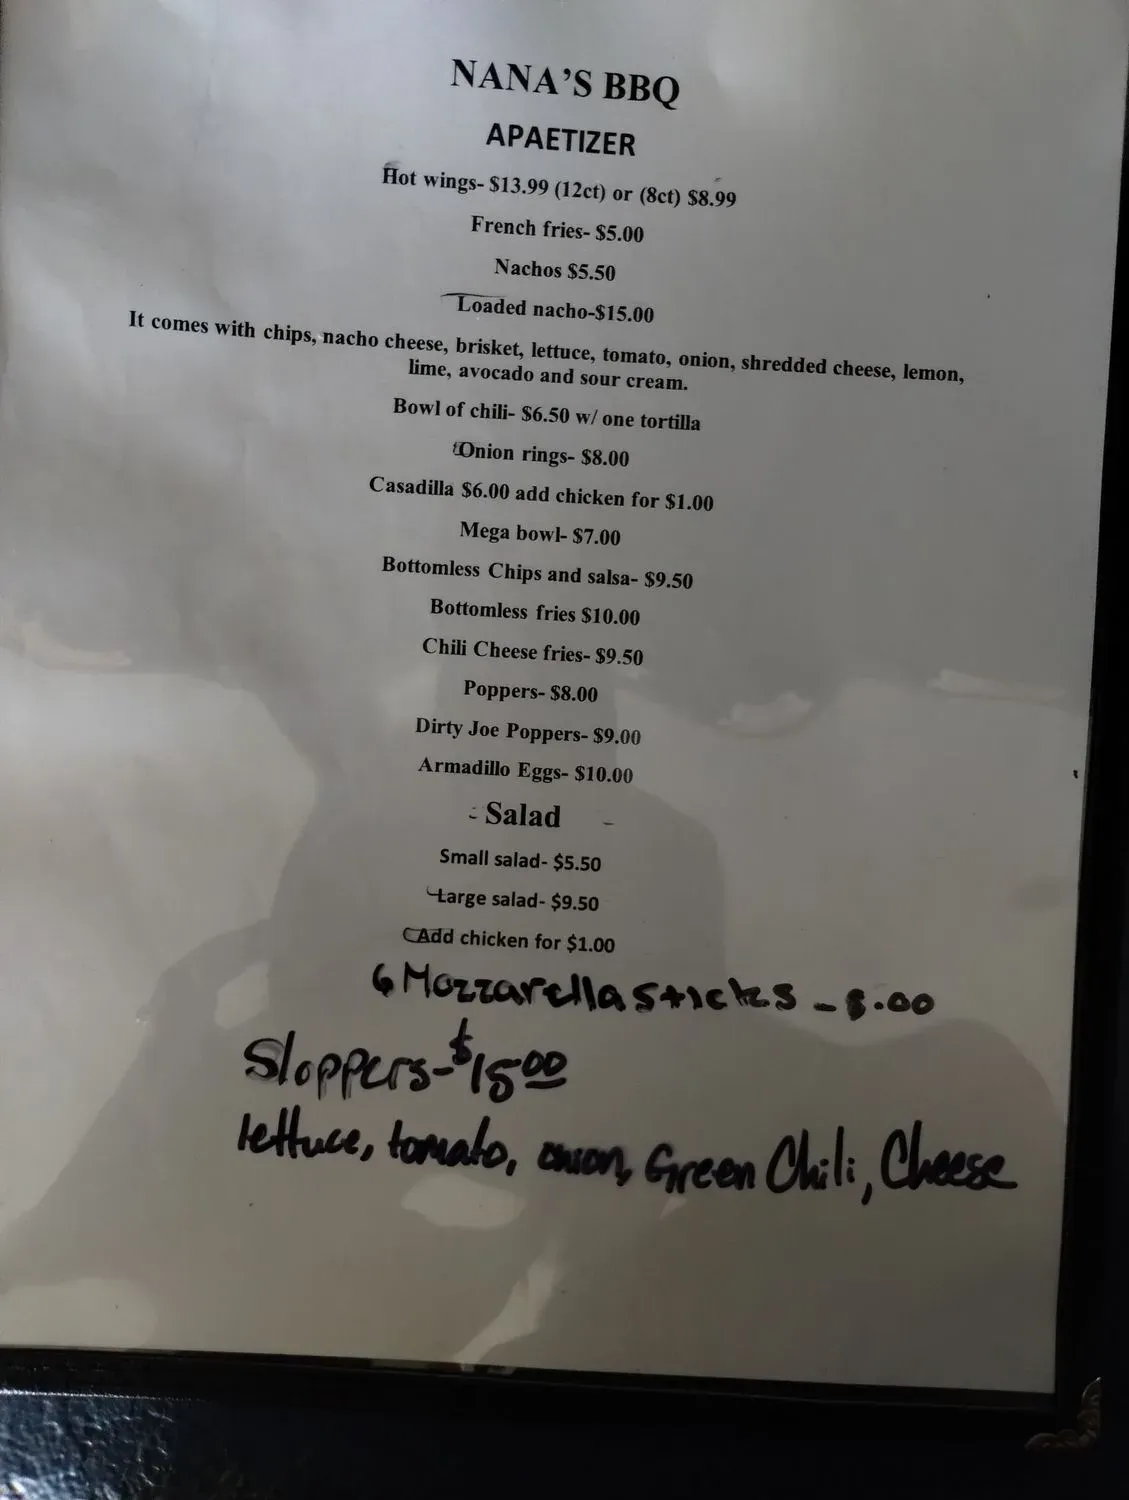 NANA'S BBQ
APAETIZER
Hot wings- $13.99 (12ct) or (8ct) $8.99
French fries- $5.00
Nachos $5.50
Loaded nacho-$15.00
It comes with chips, nacho cheese, brisket, lettuce, tomato, onion, shredded cheese, lemon,
lime, avocado and sour cream.
Bowl of chili- $6.50 w/ one tortilla
Onion rings- $8.00
Casadilla $6.00 add chicken for $1.00
Mega bowl- $7.00
Bottomless Chips and salsa- $9.50
Bottomless fries $10.00
Chili Cheese fries- $9.50
Poppers- $8.00
Dirty Joe Poppers- $9.00
Armadillo Eggs- $10.00
Salad
Small salad- $5.50
Large salad- $9.50
Add chicken for $1.00
6 Mozzarella sticks -
Sloppers-$15.00
lettuce, tomato, onion, Green Chili, Cheese